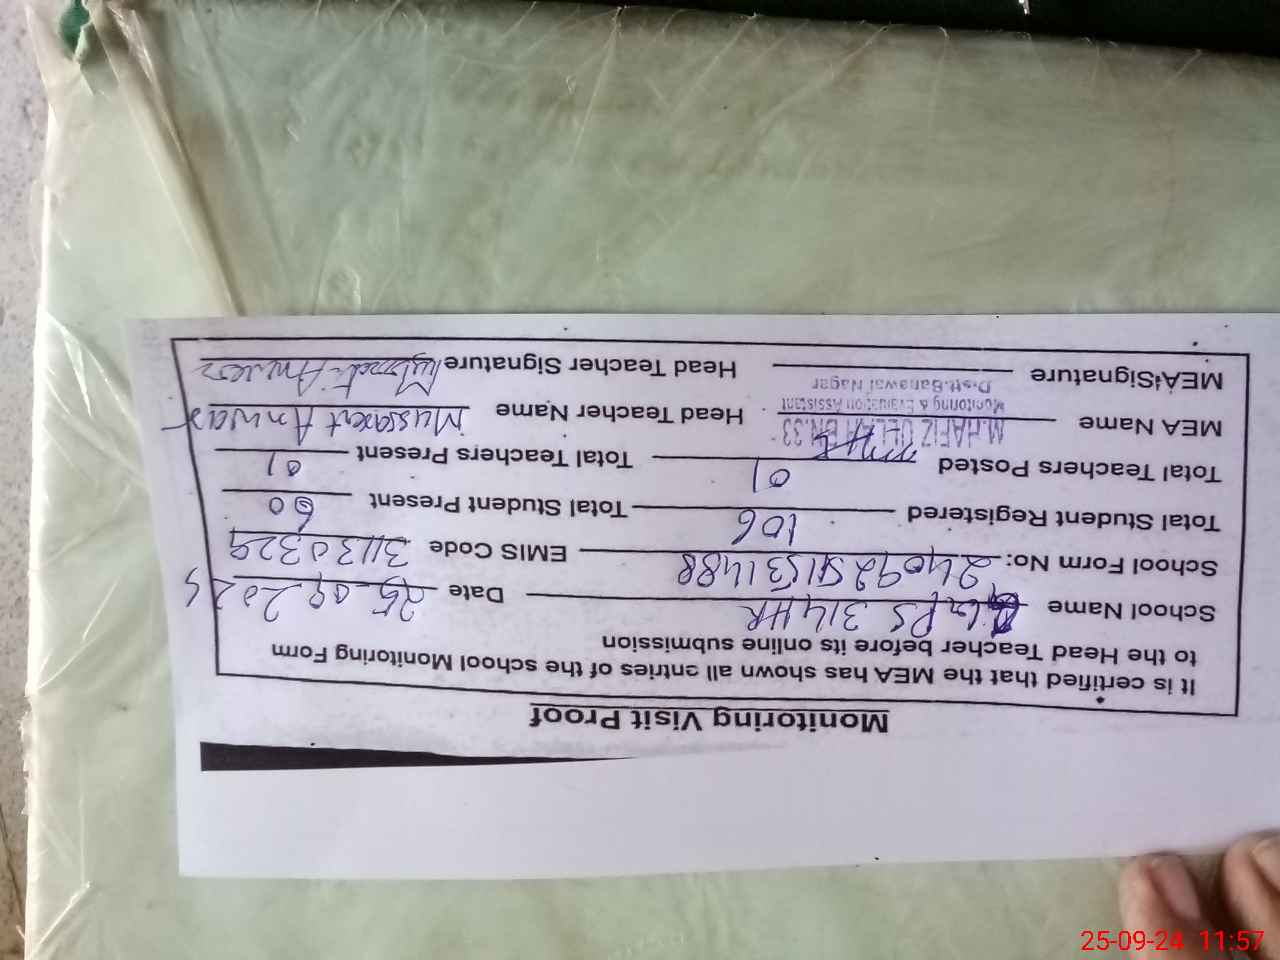 Monitoring Visit Proof
It is certified that the MEA has shown all entries of the school Monitoring Form
to the Head Teacher before its online submission
School Name GPS 314HR Date 25-09-2024
School Form No: 2409251531488 EMIS Code 31130329
Total Student Registered 106 Total Student Present 60
Total Teachers Posted 01 Total Teachers Present 01
MEA Name M.HAFIZ ULLAH BN.33 Head Teacher Name Mussarat Anwar
Monitoring & Evaluation Assistant
Distt.Bahawal Nagar
MEA Signature Head Teacher Signature Anwar
25-09-24 11:57